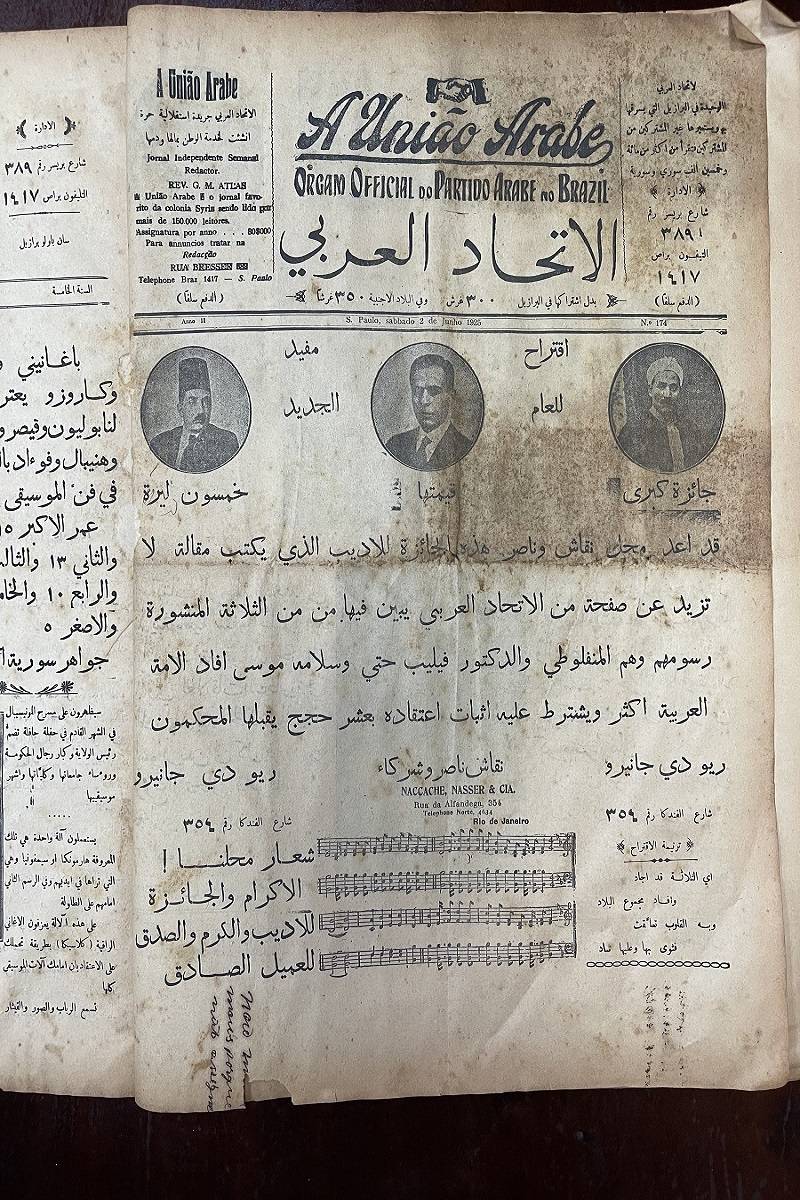 A União Arabe
الاتحاد العربي جريدة استقلالية حرة
انشئت لخدمة الوطن بمالها ودمها
Jornal Independente Semanal
Redactor.
REV. G. M. ATLAS
A União Arabe é o jornal favo-
rito da colonia Syria sendo lida por
mais de 150.000 leitores.
Assignatura por anno . . . 80$000
Para annuncios tratar na
Redacção
RUA BRESSER
Telephone Braz 1417 — S. Paulo
(الدفع سلفًا)
A União Arabe
ORGAM OFFICIAL DO PARTIDO ARABE NO BRAZIL
الاتحاد العربي
بدل اشتراكها في البرازيل ٣٠٠ غرش وفي البلاد الاجنبية ٣٥٠ غرشًا
الاتحاد العربي
الوحيدة في البرازيل التي يسرقها
ويستعيرها غير المشتركين من
المشتركين فتقرأ من أكثر من مائة
وخمسين الف سوري وسورية
الادارة
شارع بريسر رقم
٣٨٩١
التليفون براص
١٤١٧
(الدفع سلفًا)
Anno II
S. Paulo, sabbado 2 de Junho 1925
N.º 174
اقتراح مفيد
للعام الجديد
جائزة كبرى قيمتها خمسون ليرة
قد اعد محل نقاش وناصر هذه الجائزة للاديب الذي يكتب مقالة لا
تزيد عن صفحة من الاتحاد العربي يبين فيها من من الثلاثة المنشورة
رسومهم وهم المنفلوطي والدكتور فيليب حتي وسلامه موسى افاد الامة
العربية اكثر ويشترط عليه اثبات اعتقاده بعشر حجج يقبلها المحكمون
ريو دي جانيرو
نقاش ناصر وشركاء
ريو دي جانيرو
NACCACHE, NASSER & CIA.
Rua da Alfandega, 354
Telephone Norte, 4434
Rio de Janeiro
شارع الفندكا رقم ٣٥٤
شارع الفندكا رقم ٣٥٤
ترنيمة الاقتراح
اي الثلاثة قد اجاد
وافاد مجموع البلاد
وبه القلوب تعلقت
شعار محلنا !
الاكرام والجائزة
للاديب والكرم والصدق
للعميل الصادق
الادارة
شارع بريسر رقم ٣٨٩
التليفون براص ١٤١٧
سان باولو برازيل
السنة الخامسة
باغانيني
وكاروزو
لنابوليون وقيصر
وهنيبال وفوءاد
في فن الموسيقى
عمر الاكبر
والثاني ١٣
والرابع ١٠
والاصغر ٥
جواهر سورية
سيظهرون على مسرح
في الشهر القادم في حفلة حافلة
رئيس الولاية وكبار رجال الحكومة
موسيقيها
يستعملون آلة واحدة هي تلك
المعروفة هارمونكا او سيمفونيا وهي
التي تراها في ايديهم وفي الرسم الثاني
امامهم على الطاولة
على هذه الآلة يعزفون الاغاني
الراقية (كلاسيكا) بطريقة تحملك
على الاعتقاد بان امامك آلات الموسيقى
كلها
تسمع الرباب والصور والقيثار